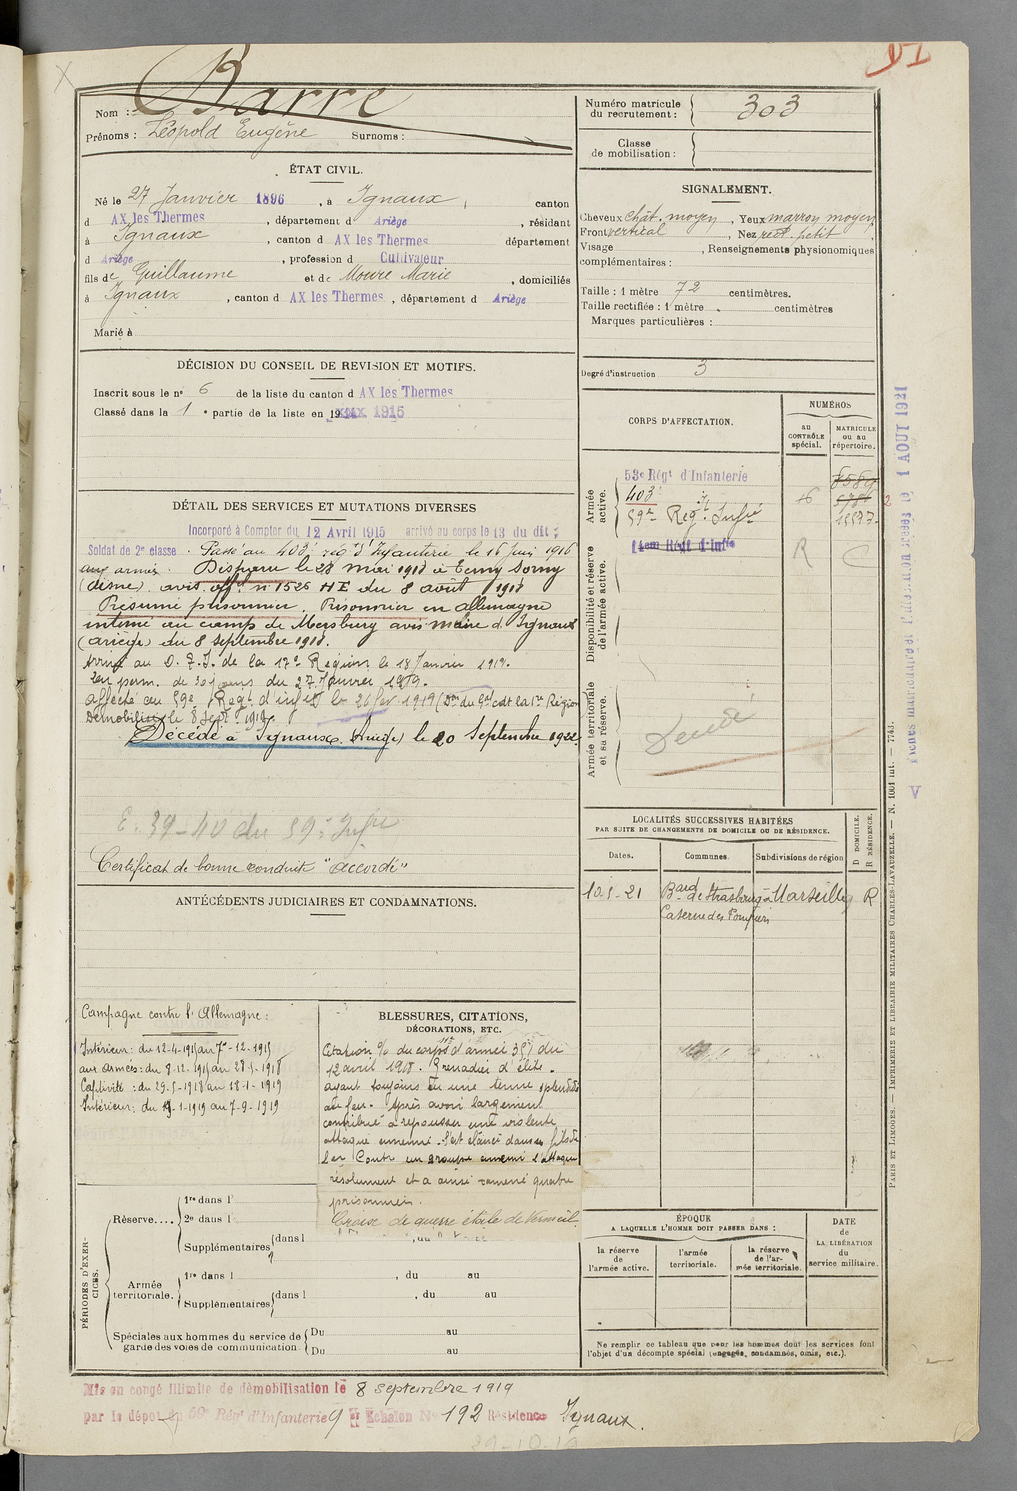 VI
Nom : Barre
Prénoms : Léopold Eugène Surnoms :
ÉTAT CIVIL.
Né le 27 Janvier 1896, à Ignaux, canton
d AX les Thermes, département d Ariège, résidant
à Ignaux, canton d AX les Thermes département
d Ariège, profession d Cultivateur
fils de Guillaume et de Moure Marie, domiciliés
à Ignaux, canton d AX les Thermes, département d Ariège
Marié à
DÉCISION DU CONSEIL DE REVISION ET MOTIFS.
Inscrit sous le n° 6 de la liste du canton d AX les Thermes
Classé dans la 1 e partie de la liste en 19 1915
DÉTAIL DES SERVICES ET MUTATIONS DIVERSES
Incorporé à Compter du 12 Avril 1915 arrivé au corps le 13 du dit ;
Soldat de 2e classe. Passé au 403e rég t d'Infanterie le 16 Juin 1916
aux armées. Disparu le 28 mai 1918 à Terny Sorny
(aisne) avis off. n° 1526 HE du 8 août 1918
Présumé prisonnier. Prisonnier en Allemagne
interné au camp de Mersburg avis maire d'Ignaux
(ariège) du 8 septembre 1918.
Arrivé au D. I. de la 17e Région le 18 Janvier 1919.
En perm. de 30 jours du 27 Janvier 1919.
Affecté au 59e Reg t d'inf ie le 26 fév 1919 (Don du Gal cdt la 17e Région
Démobilisé le 8 Sept. 1919.
Décédé à Ignaux (Ariège) le 20 Septembre 1922
E. 39-40 du 59e Inf rie
Certificat de bonne conduite "accordé"
ANTÉCÉDENTS JUDICIAIRES ET CONDAMNATIONS.
Campagne contre l'Allemagne :
Intérieur : du 12-4-1915 au 7-12-1915
aux armées : du 8-12-1915 au 28-5-1918
Captivité : du 29-5-1918 au 18-1-1919
Intérieur : du 19-1-1919 au 7-9-1919
BLESSURES, CITATIONS,
DÉCORATIONS, ETC.
Citation % du corps d'armée 357 du
12 avril 1918. Grenadier d'élite.
ayant toujours eu une tenue splendide
au feu. Après avoir largement
contribué à repousser une violente
attaque ennemie. S'est élancé dans
un groupe ennemi l'attaquer
résolument et a ainsi ramené quatre
prisonniers.
Croix de guerre étoile de Vermeil.
PÉRIODES D'EXERCICES.
Réserve.... 1re dans l
2e dans l
Supplémentaires dans l , au
Armée territoriale. 1re dans l , du au
Supplémentaires dans l , du au
Spéciales aux hommes du service de Du au
garde des voies de communication. Du au
Numéro matricule du recrutement : 303
Classe de mobilisation :
SIGNALEMENT.
Cheveux chât. moyen, Yeux marron moyen
Front vertical, Nez rect. petit
Visage , Renseignements physionomiques
complémentaires :
Taille : 1 mètre 72 centimètres.
Taille rectifiée : 1 mètre centimètres
Marques particulières :
Degré d'instruction 3
CORPS D'AFFECTATION.
NUMÉROS
au CONTRÔLE spécial.
MATRICULE ou au répertoire.
Armée active.
53e Régt d'Infanterie
403e
59e Reg t Inf ie
14em Régt d'Infie
8589
16
R
C
Disponibilité et réserve de l'armée active.
Armée territoriale et sa réserve.
LOCALITÉS SUCCESSIVES HABITÉES
PAR SUITE DE CHANGEMENTS DE DOMICILE OU DE RÉSIDENCE.
Dates. Communes. Subdivisions de région D DOMICILE. R RÉSIDENCE.
10-5-21 Bard de Strasbourg à Marseille R
Caserne des Pompiers
ÉPOQUE
A LAQUELLE L'HOMME DOIT PASSER DANS :
la réserve de l'armée active.
l'armée territoriale.
la réserve de l'armée territoriale.
DATE de LA LIBÉRATION du service militaire.
Ne remplir ce tableau que pour les hommes dont les services font
l'objet d'un décompte spécial (engagés, condamnés, omis, etc.).
PARIS ET LIMOGES. — IMPRIMERIE ET LIBRAIRIE MILITAIRES CHARLES-LAVAUZELLE. — N. 1001 int. — 7743.
1 AOUT 1921
Mis en congé illimité de démobilisation le 8 septembre 1919
par le dépot 59e Rég t d'Infanterie 9 e Echelon No 192 Résidence Ignaux.
29-10-19